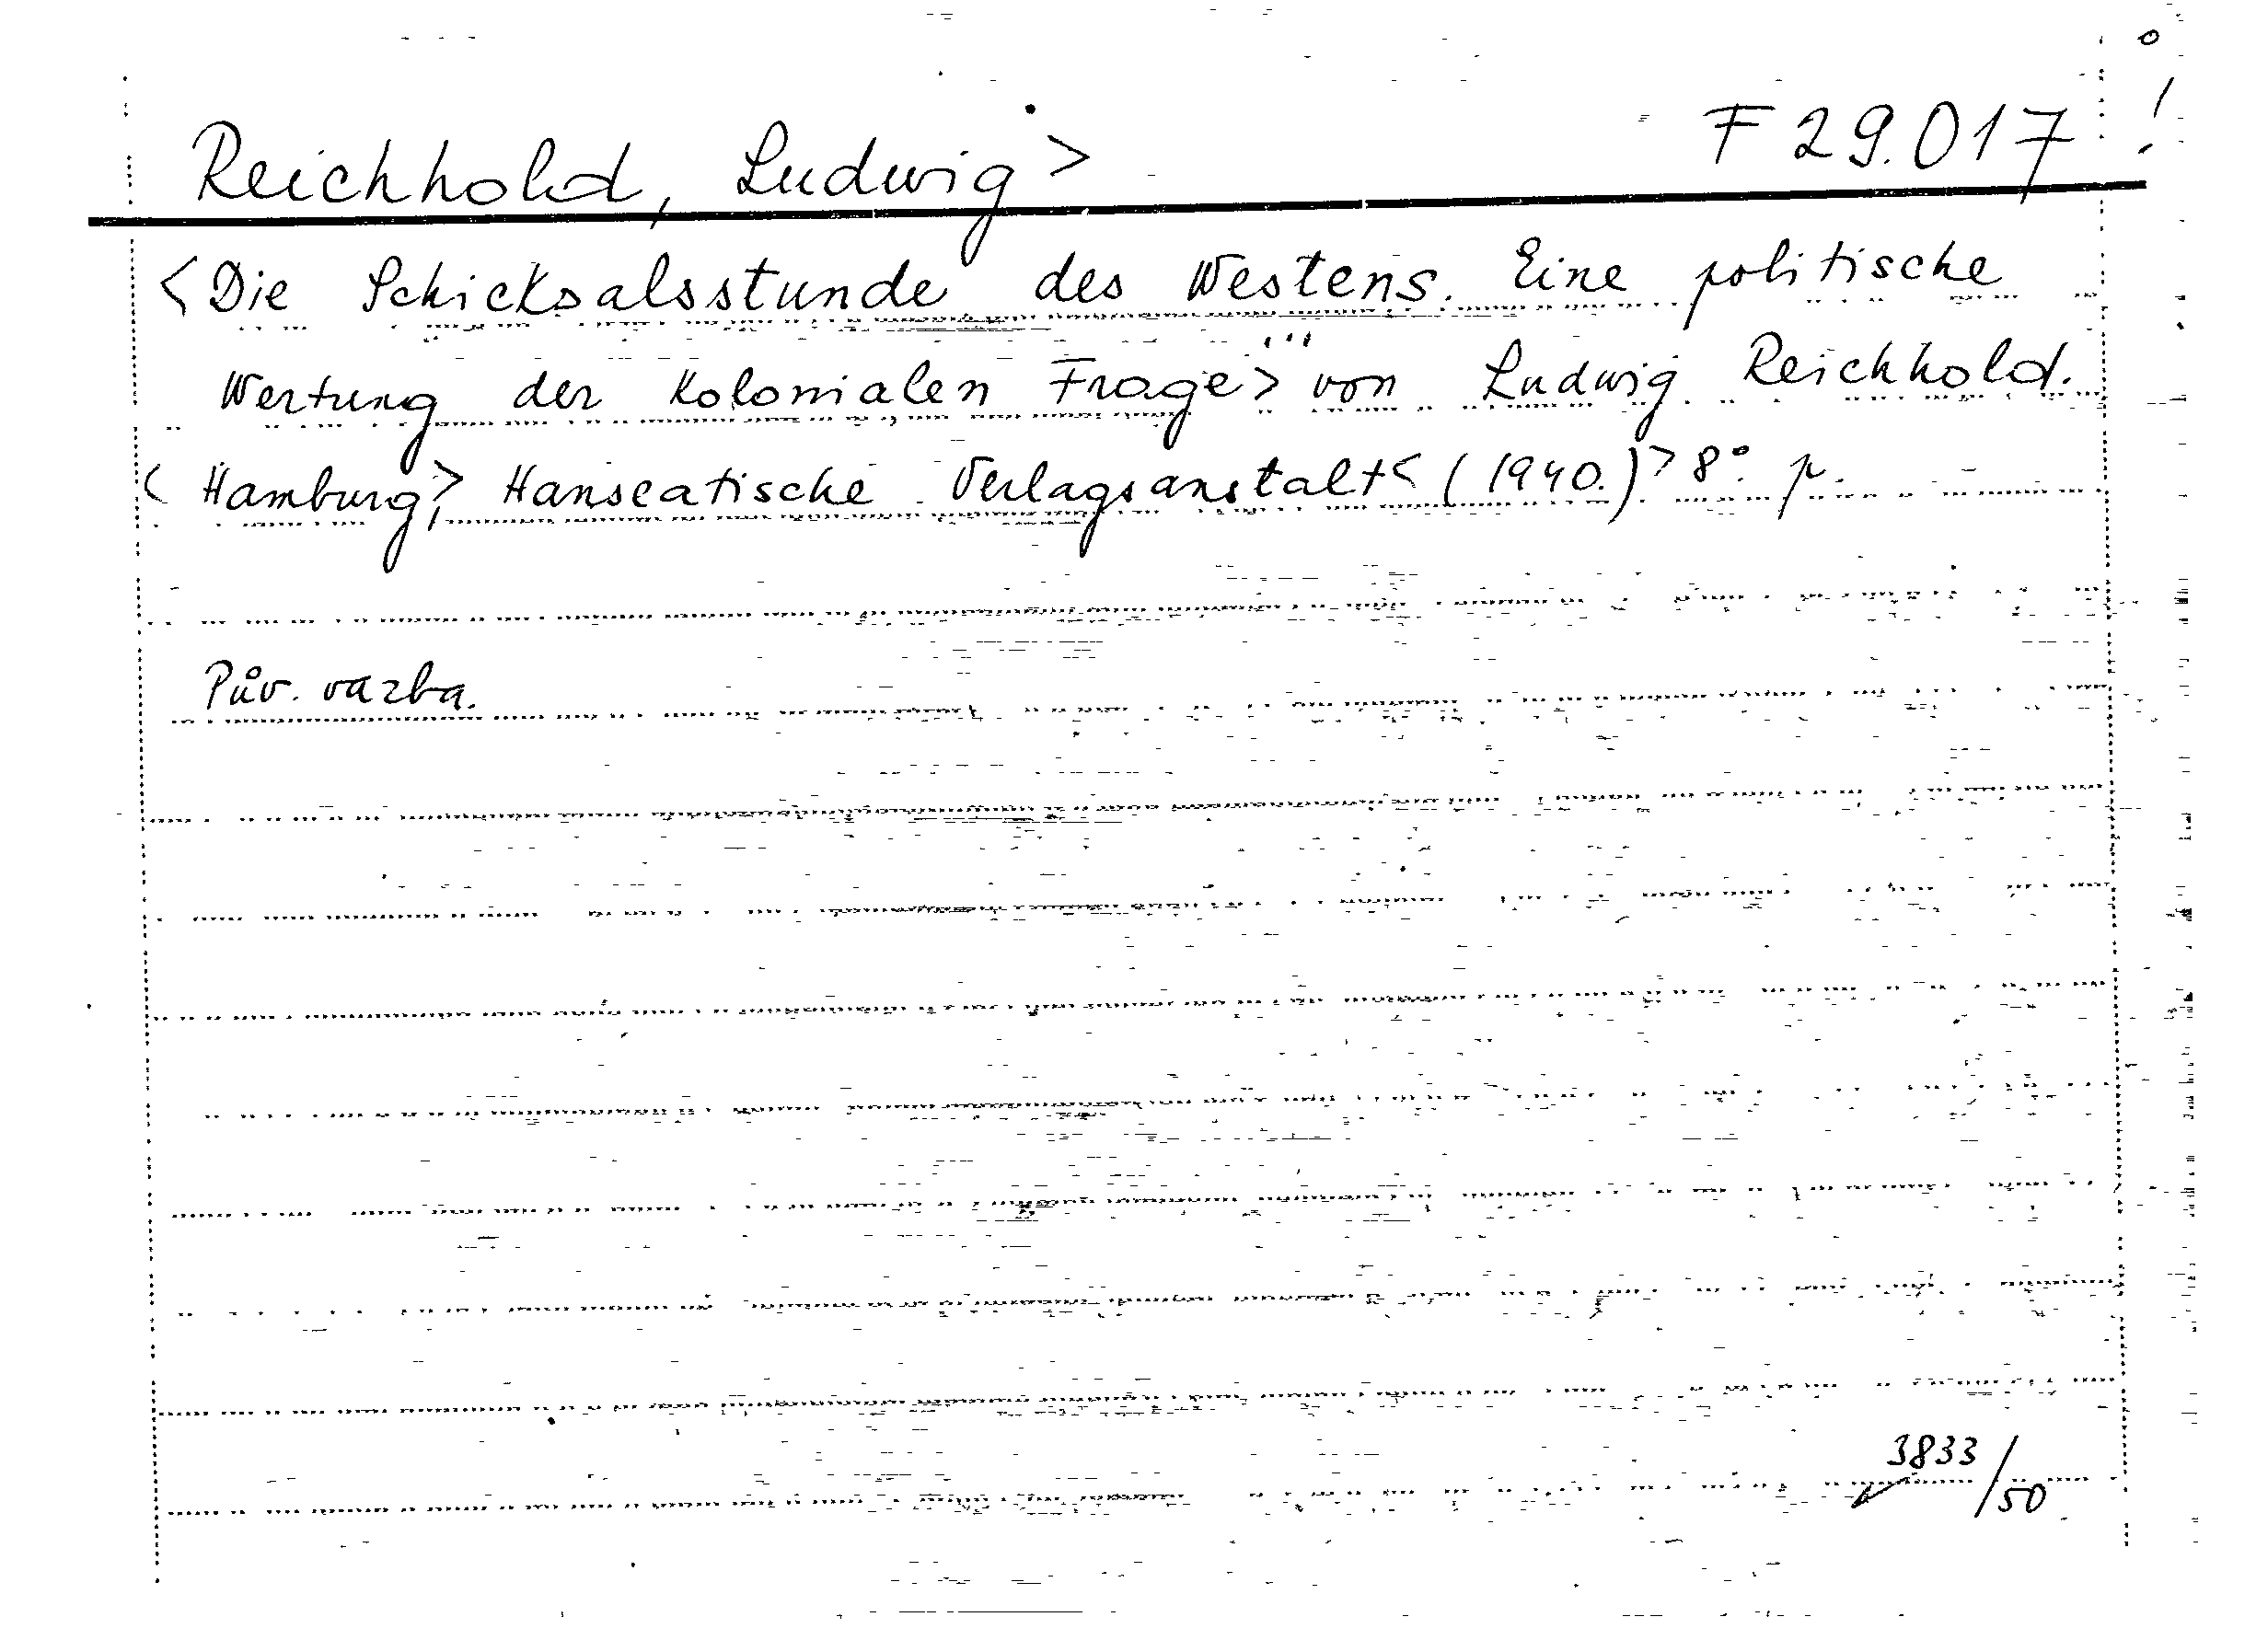 Reichhold, Ludwig> F 29.017 !
<Die Schicksalsstunde des Westens. Eine politische
Wertung der Kolonialen Frage> von Ludwig Reichhold.
<Hamburg,> Hanseatische Verlagsanstalt< (1940.)> 8°. p.
Pův. vazba.
3833/50